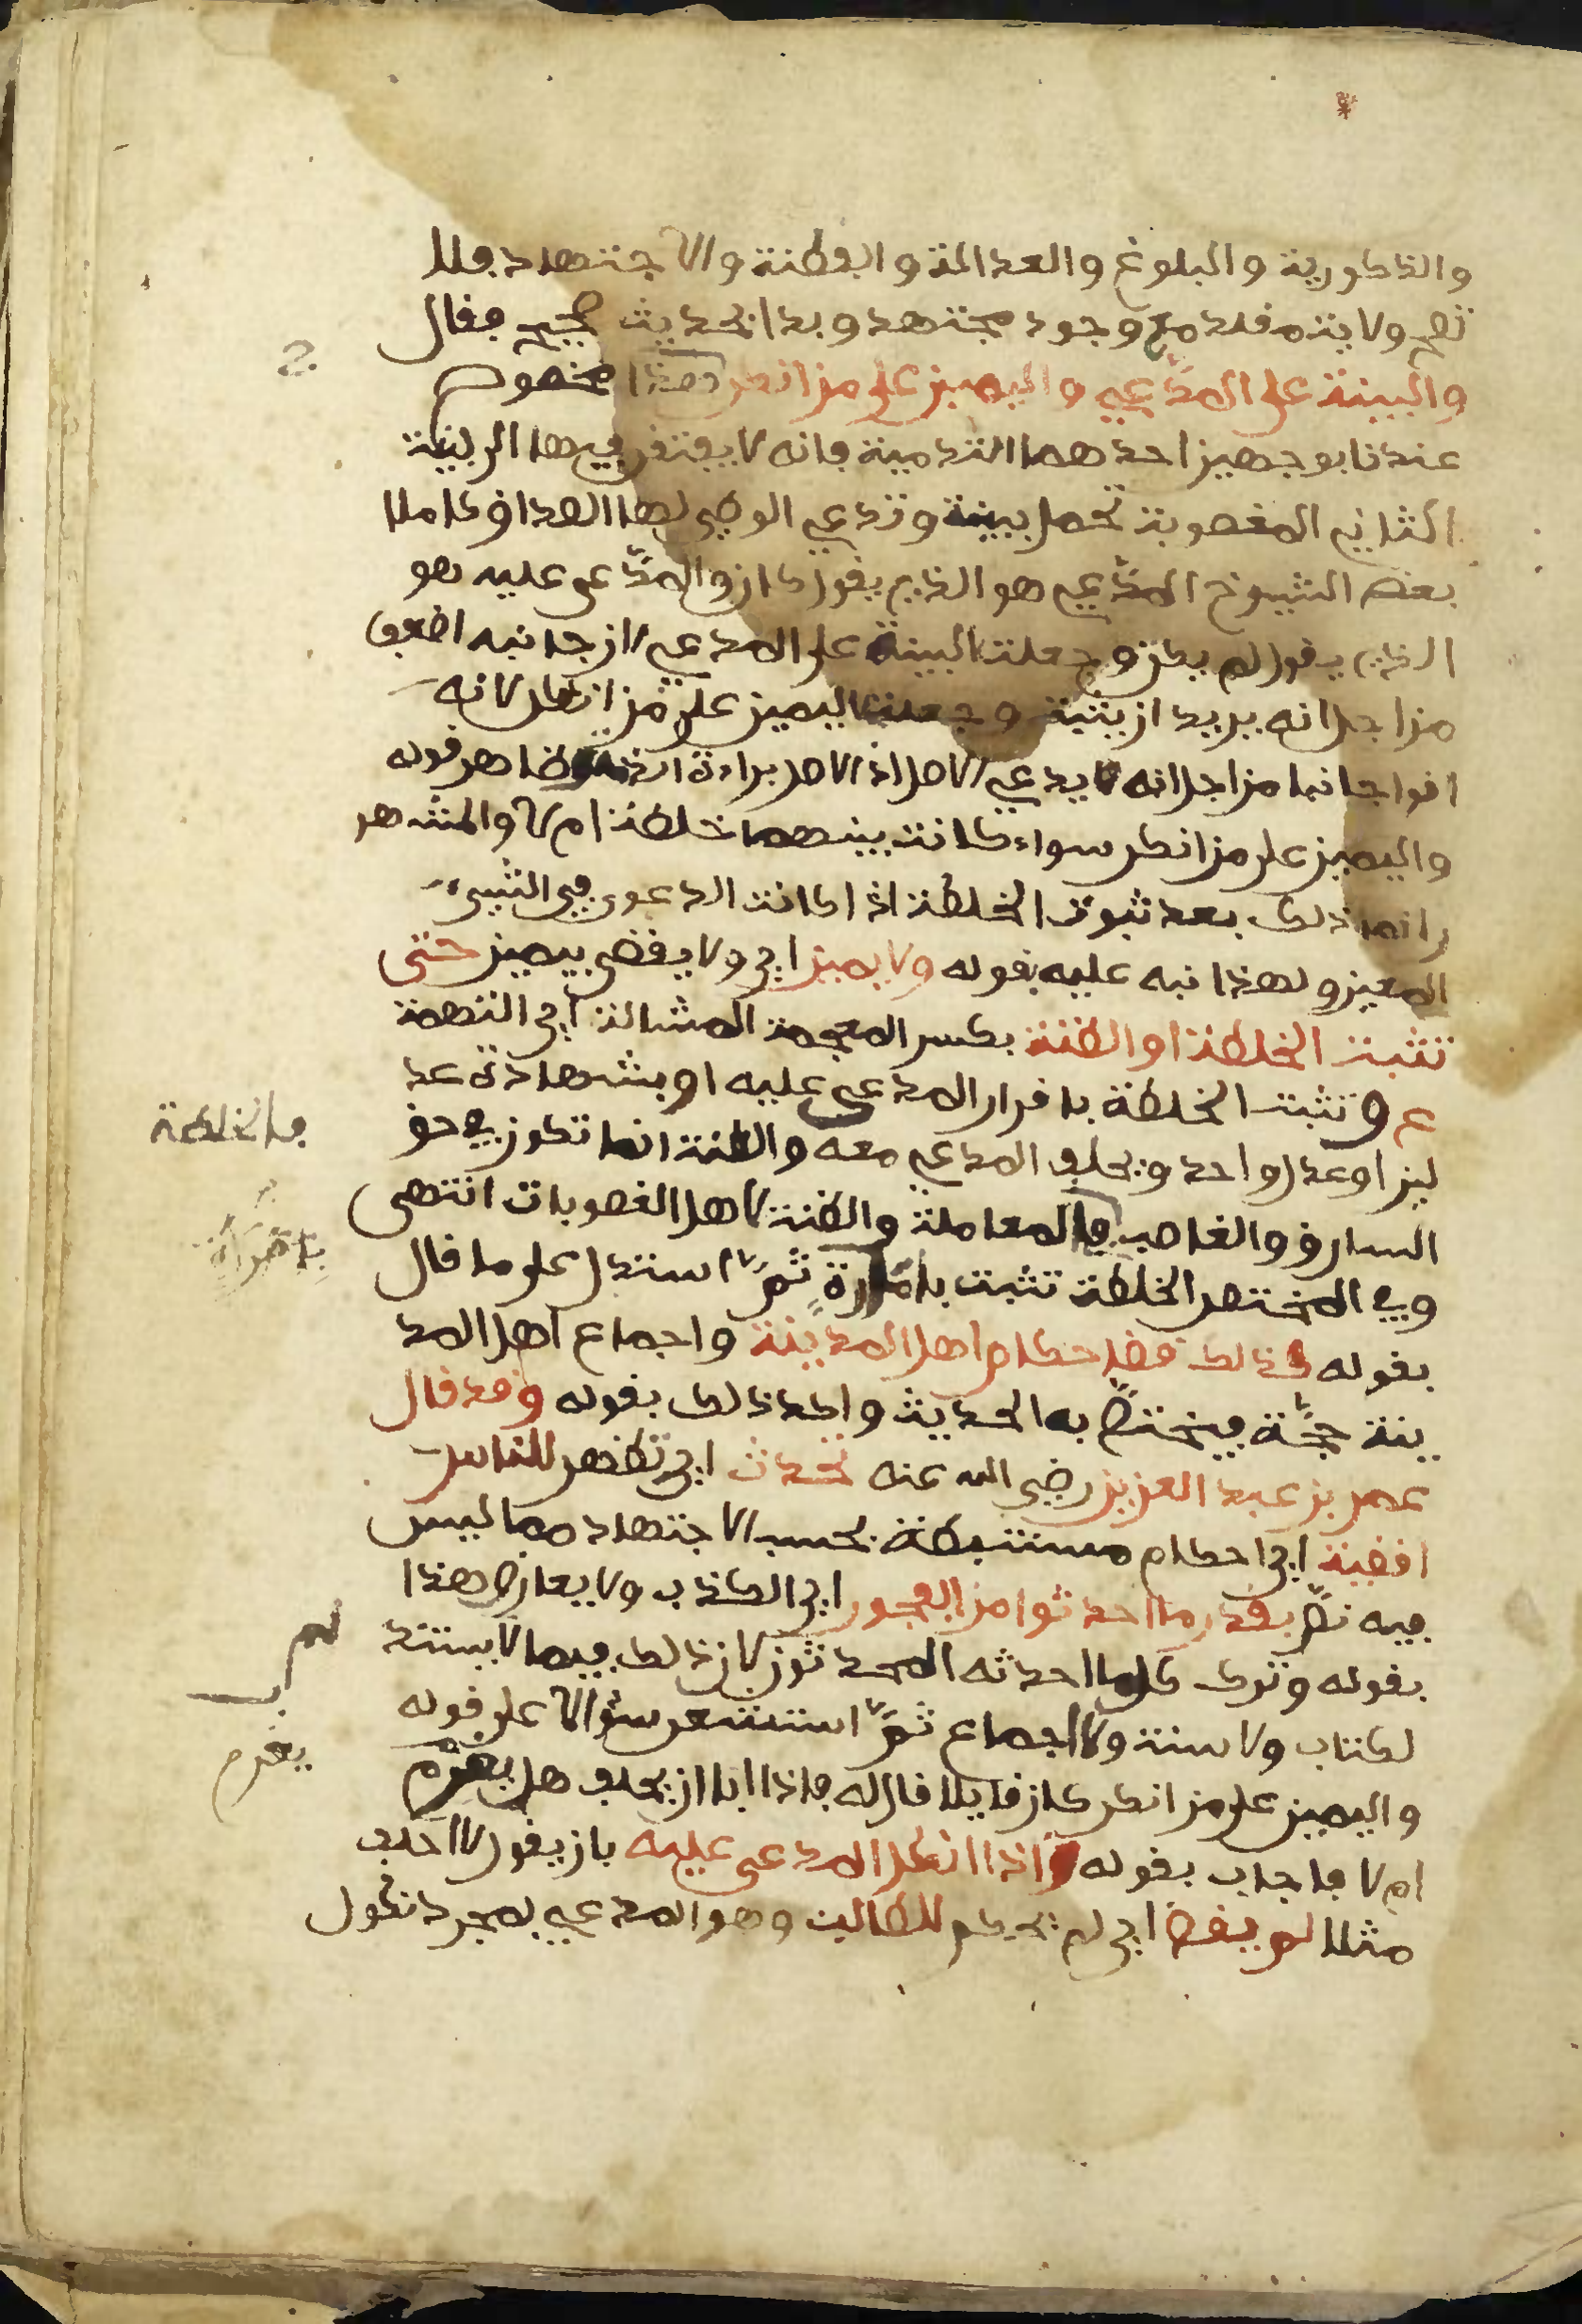 والذكورية والبلوغ والعدالة والفطنة والاجتهاد فلا
تصح ولاية مقلد مع وجود مجتهد وبدا بحديث صحيح فقال
والبينة على المدعي واليمين على من انكر وهذا مخصوص
عندنا بوجهين احدهما التدمية فانه لا يفتقر فيها الى بينة
الثاني المغصوبة تحمل ببينة وتدعي الوطي لها الصداق كاملا
بعض الشيوخ المدّعي هو الذي يقول كان والمدّعى عليه هو
الذي يقول لم يكن وجعلت البينة على المدعي لان جانبه اضعف
من اجل انه يريد ان يثبت وجعلت اليمين على من انكر لانه
اقوا جانبا من اجل انه لا يدعي الاصل اذ الاصل براءة الذمة وظاهر قوله
واليمين على من انكر سواء كانت بينهما خلطة ام لا والمشهر
وانما ذلك بعد ثبوت الخلطة اذا كانت الدعوى في الشيء
المعين ولهذا نبه عليه بقوله ولا يمين اي ولا يقضى بيمين حتى
تثبت الخلطة او الظنة بكسر المعجمة المشالة اي التهمة
ع وتثبت الخلطة باقرار المدعى عليه او بشهادة عد
لين او عدل واحد ويحلف المدعي معه والظنة انما تكون في حق
السارق والغاصب فالمعاملة والظنة لاهل الغصوبات انتهى
وفي المختصر الخلطة تثبت بامراة ثمّ استدل على ما قال
بقوله كذلك قضا حكام اهل المدينة واجماع اهل المد
ينة حجّة فيختصّ به الحديث واكد ذلك بقوله وقد قال
عمر بن عبد العزيز رضي الله عنه تحدث اي تظهر للناس
اقضية اي احكام مستنبطة بحسب الاجتهاد مما ليس
فيه نصّ بقدر ما احدثوا من الفجور اي الكذب ولا يعارض هذا
بقوله وترك كلما احدثه المحدثون لان ذلك فيما لا يستند
لكتاب ولا سنة ولا اجماع ثمّ استشعر سؤالا على قوله
واليمين على من انكر كان قايلا قال له فاذا ابا ان يحلف هل يغرّم
ام لا فاجاب بقوله واذا انكل المدعى عليه بان يقول لا احلف
مثلا لم يقض اي لم يحكم للطالب وهو المدعي لمجرد نكول
فالخلطة
بامراة
لم
يغرم